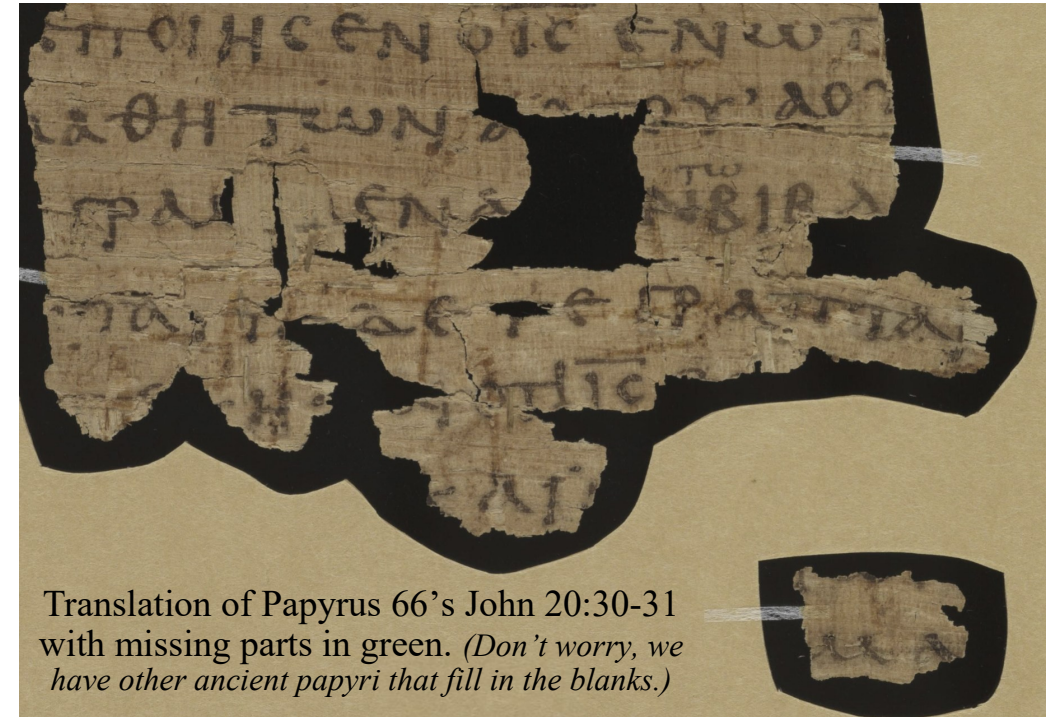 ΕΠΟΙΗϹΕΝ Ο ΙϹ ΕΝωΠ
ΑΘΗΤωΝ Α ΟΥ’ ΑΟΥ
ΓΡΑ ΜΕΝΑ Ν Τω ΒΙΒΛ
ΤΑ ΔΕ ΓΕΓΡΑΠΤΑΙ
ΟΤΙ ΙϹ
Translation of Papyrus 66’s John 20:30-31
with missing parts in green. (Don’t worry, we
have other ancient papyri that fill in the blanks.)